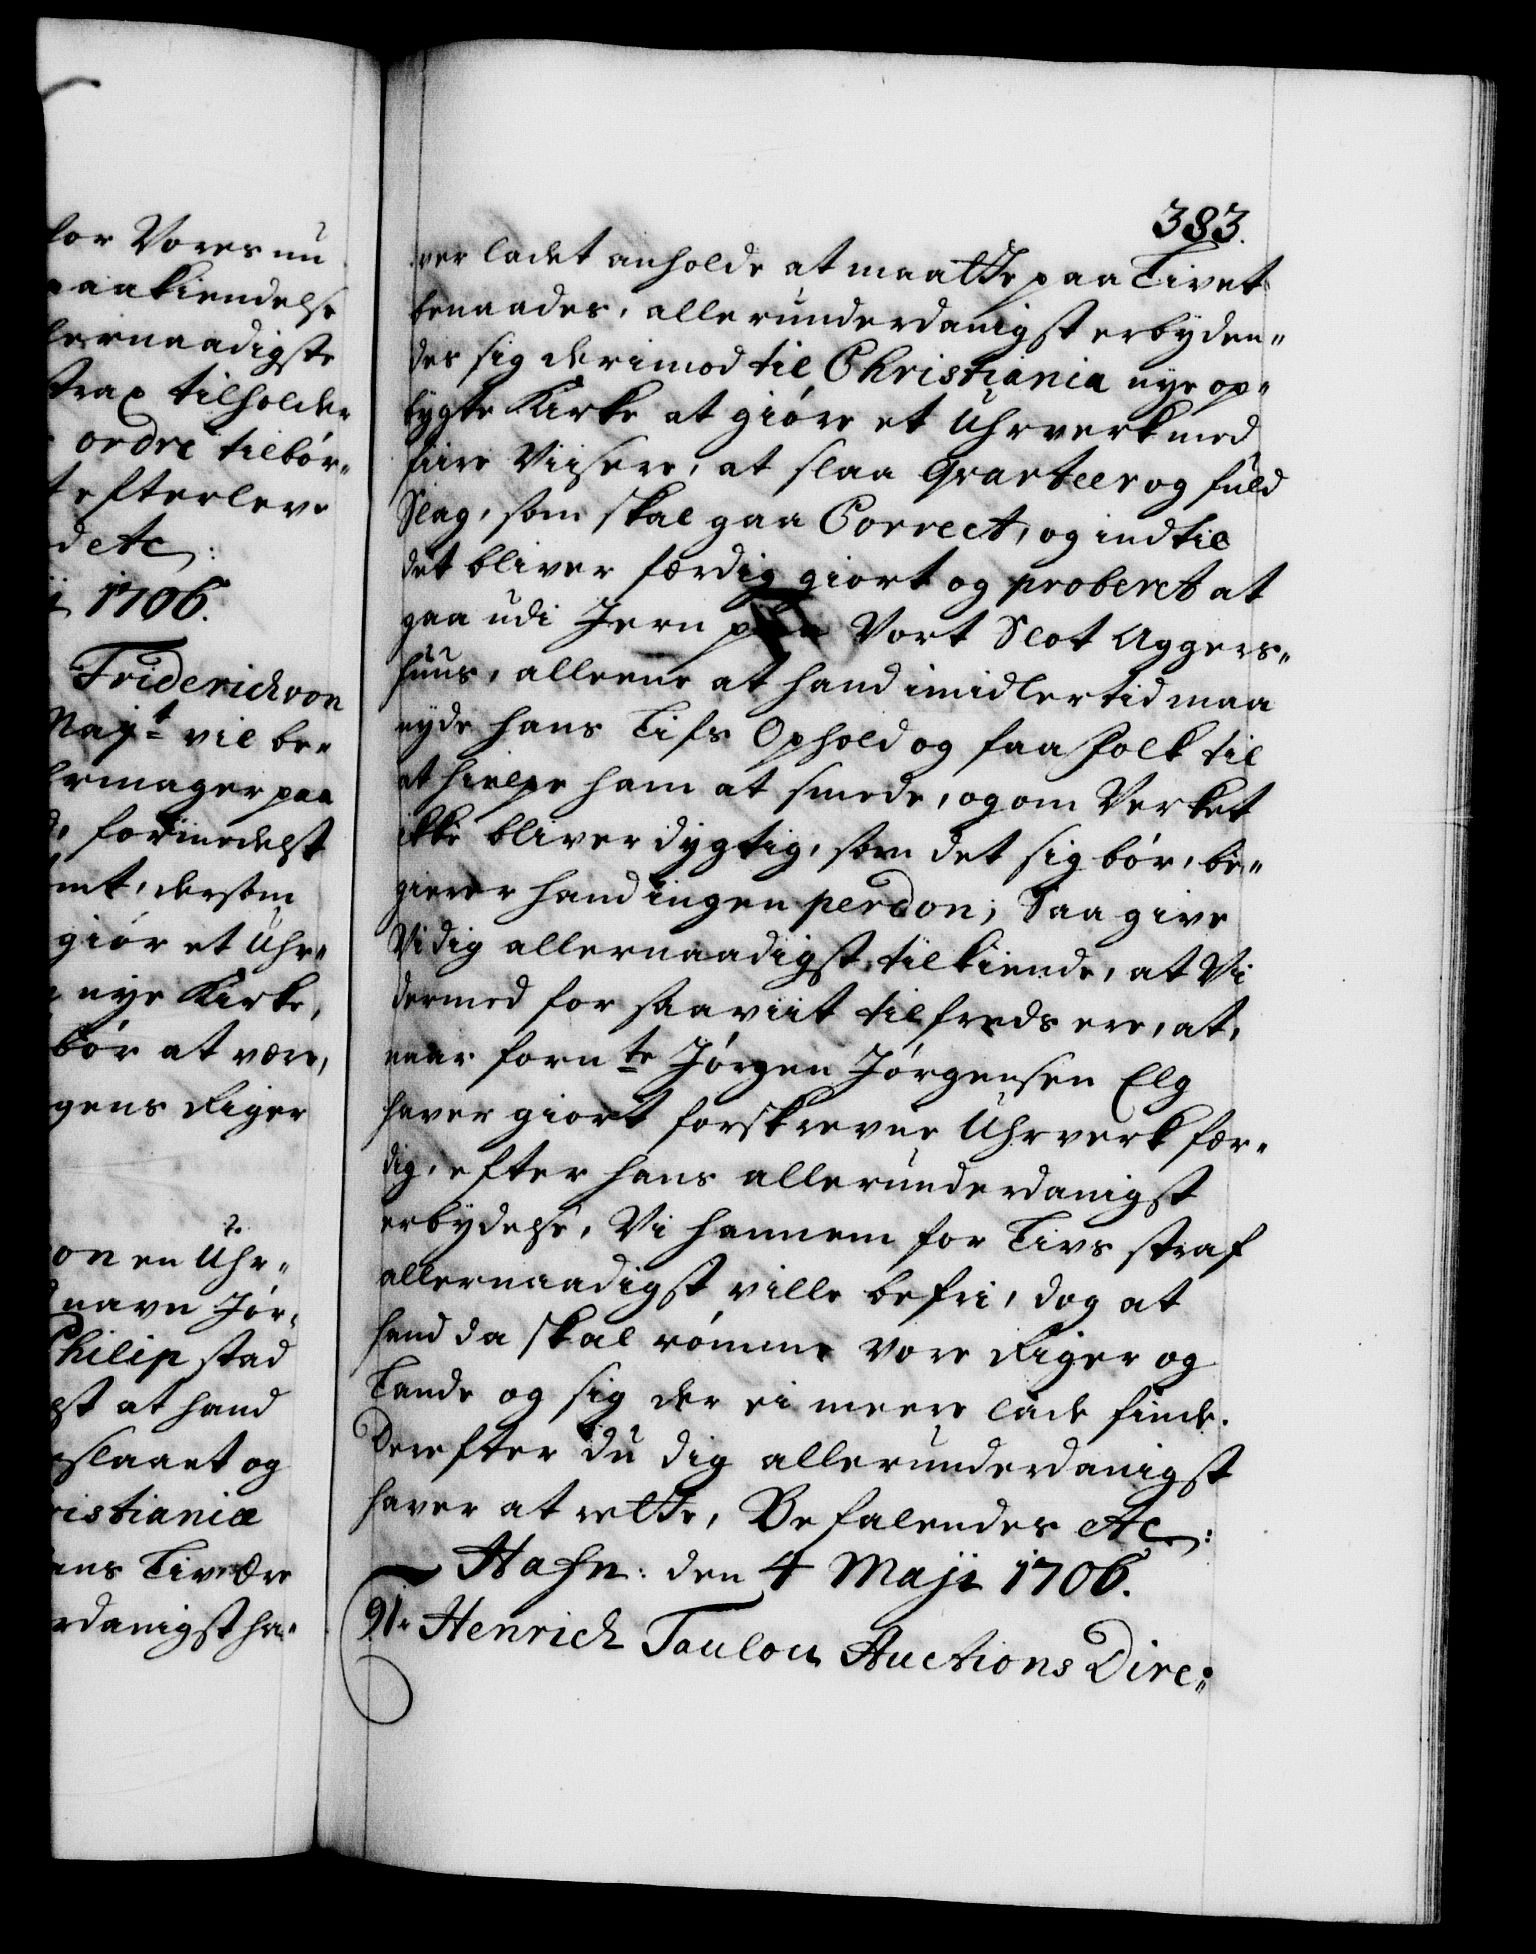 for Vores nu
paakiendelse
lernaadigste
strax tilholde,,
ordre tilbør,,
efterleve
d etc:
1706.
Friderich von
Maj:t vil be,,
hrmager paa
formedelst
mt, dersom
giör et Uhr,,
nye Kirke,
bör at være,
gens Riger
on en Uhr,,
navn Jör,,
Philip stad
st at hand
slaaet og
ristiania
ans Liv ere
rdanigst ha,,
383.
ver ladet anholde at maatte paa Livet
benaades, allerunderdanigst erbyden,,
des sig derimod til Christiania nye op,,
bygte Kirke at giöre et Uhrverk med
fiire Viisere, at slaa Qvarteer og fuld
Slag, som skal gaa Correct, og indtil
det bliver færdig giort og proberet at
gaa udi Jern paa Vort Slot Aggers,,
huus, alleene at hand imidlertid maa
nyde hans Lifs Ophold og faa folk til
at hielpe ham at smede, og om Verket
ikke bliver dygtig, som det sig bör, be,,
gierer hand ingen perdon; Saa give
Vi dig allernaadigst tilkiende, at Vii
dermed for saaviit tilfreds ere, at,
naar fornte Jörgen Jörgensen Elg
haver giort forskrevne Uhrverk fær,,
dig, efter hans allerunderdanigst
erbydelse, Vi hannem for Livs straf
allernaadigst ville befri, dog at
hand da skal römme vore Riger og
Lande og sig der ei meere lade finde.
Derefter du dig allerunderdanigst
haver at rette, Befalendes etc:
Hafn: den 4 Maji 1706.
91. Henrich Toulou Auctions Direc,,